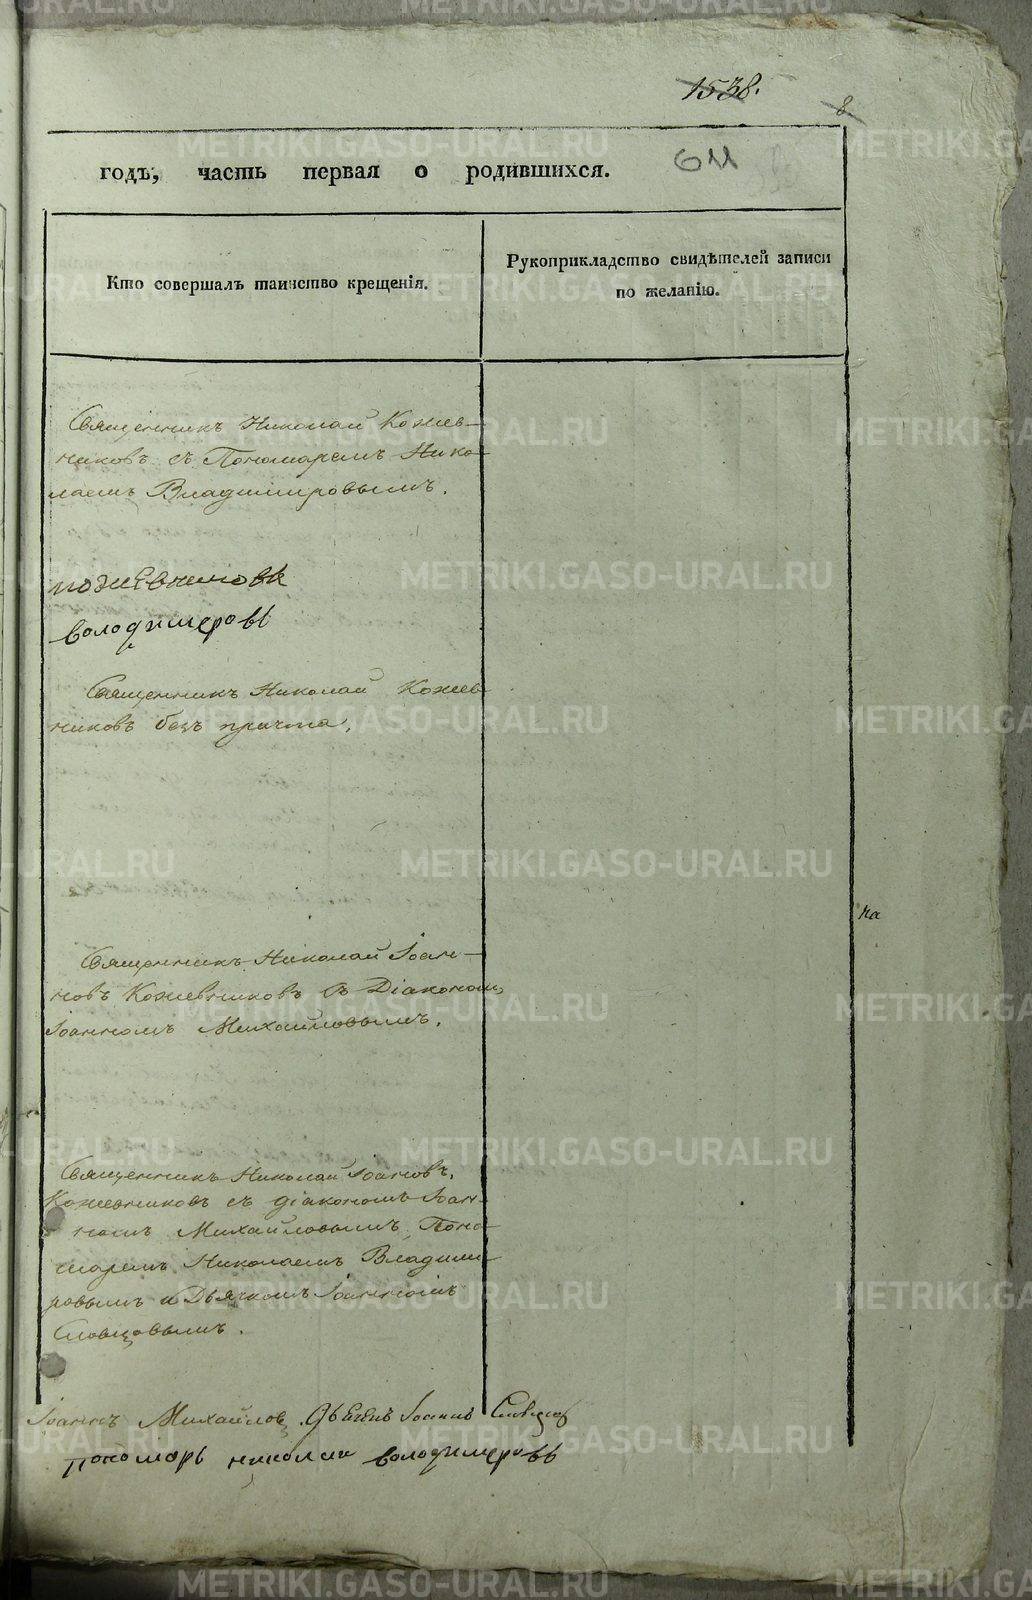 1538.
8
611
годъ, часть первая о родившихся.
Кто совершалъ таинство крещенія.
Рукоприкладство свидѣтелей записи
по желанію.
Священникъ Николай Кожев-
никовъ съ Пономаремъ Нико-
лаемъ Владимировымъ.
володимеровъ
Священникъ Николай Кожев-
никовъ безъ причта.
на
Священникъ Николай Іоан-
новъ Кожевниковъ съ Діакономъ
Іоанномъ Михайловымъ.
Священникъ Николай Іоановъ
Кожевниковъ съ діакономъ Іоан-
номъ Михайловымъ, Поно-
маремъ Николаемъ Владими-
ровымъ и Дьячкомъ Іоанномъ
Словцовымъ.
Іоаннъ Михайловъ. Іоаннъ Словцов
пономарь николаи володимеровъ
METRIKI.GASO-URAL.RU